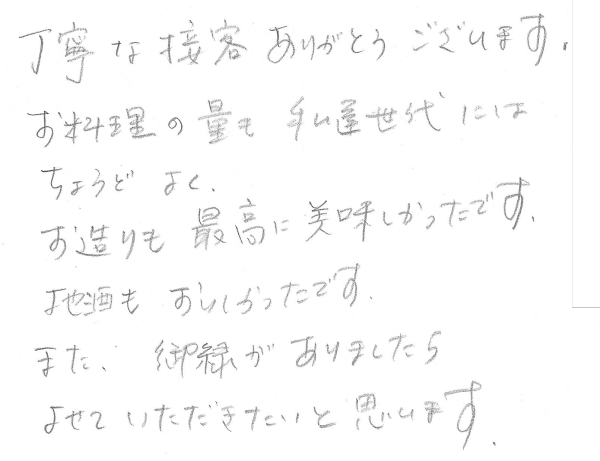 丁寧な接客ありがとうございます。
お料理の量も私達世代には
ちょうどよく、
お造りも最高に美味しかったです。
地酒もおいしかったです。
また、御縁がありましたら
よせていただきたいと思います。